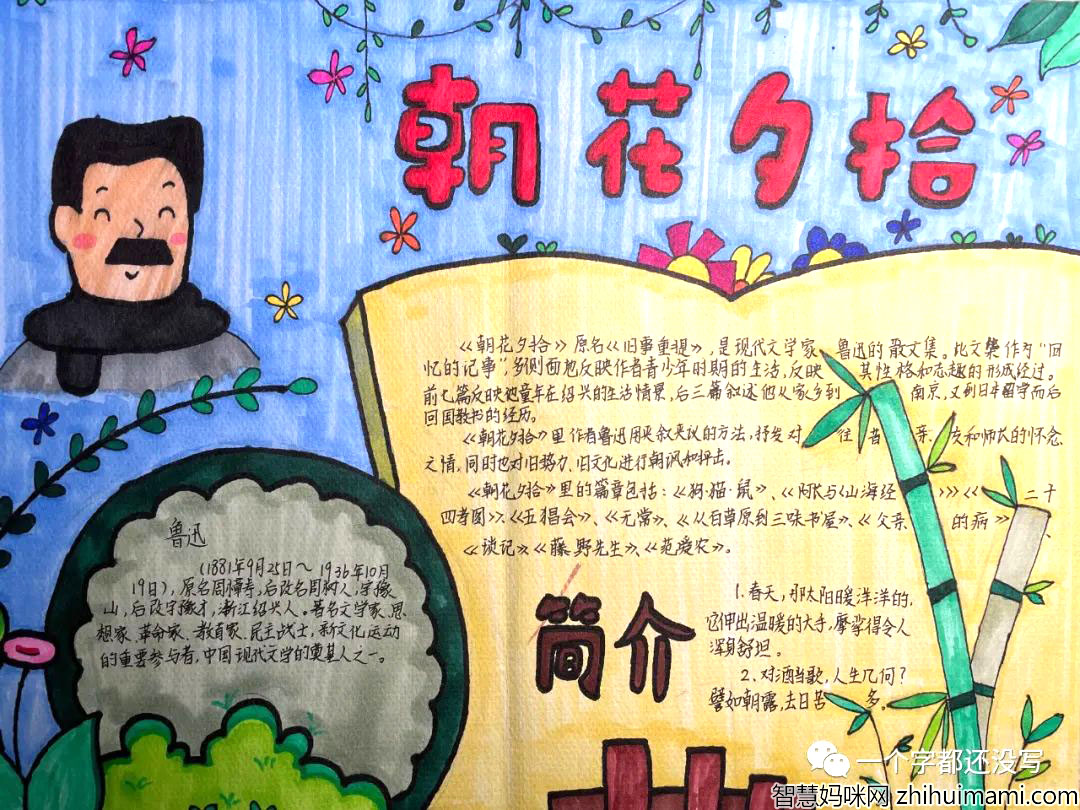 朝花夕拾
《朝花夕拾》原名《旧事重提》,是现代文学家 鲁迅的散文集。此文集作为“回
忆的记事”,多侧面地反映作者青少年时期的生活,反映 其性格和志趣的形成经过。
前七篇反映他童年在绍兴的生活情景,后三篇叙述他从家乡到 南京,又到日本留学而后
回国教书的经历。
《朝花夕拾》里作者鲁迅用夹叙夹议的方法,抒发对 往昔 亲、友和师长的怀念
之情,同时也对旧势力、旧文化进行嘲讽和抨击。
《朝花夕拾》里的篇章包括:《狗·猫·鼠》、《阿长与《山海经》》《 二十
四孝图》、《五猖会》、《无常》、《从百草原到三味书屋》、《父亲 的病》、
《谈记》《藤野先生》、《范爱农》。
鲁迅
(1881年9月25日~1936年10月
19日),原名周樟寿,后改名周树人,字豫
山,后改字豫才,浙江绍兴人。著名文学家、思
想家、革命家、教育家、民主战士,新文化运动
的重要参与者,中国现代文学的奠基人之一。
简介
1.春天,那太阳暖洋洋的,
它伸出温暖的大手,摩挲得令人
浑身舒坦。
2、对酒当歌,人生几何?
譬如朝露,去日苦 多。
一个字都还没写
智慧妈咪网 zhihuimami.com